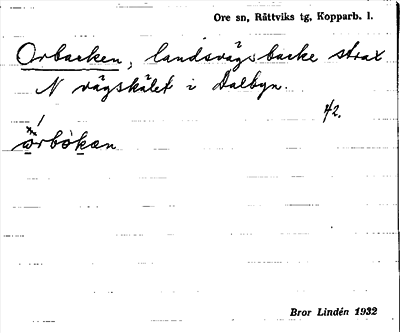 Ore sn, Rättviks tg, Kopparb. l.
Orbacken, landsvägsbacke strax
N vägskälet i Dalbyn.
42.
orbòkæn
Bror Lindén 1932